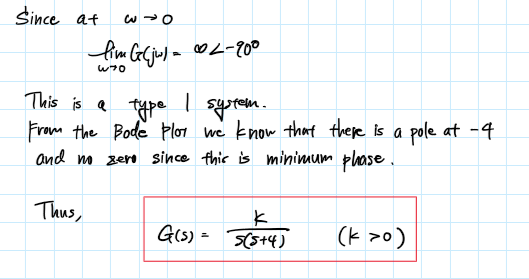 Since at ω→0
lim G(jω) = ∞∠-90°
ω→0
This is a type 1 system.
From the Bode Plot we know that there is a pole at -4
and no zero since this is minimum phase.
Thus,
G(s) = k / s(s+4) (k >0)